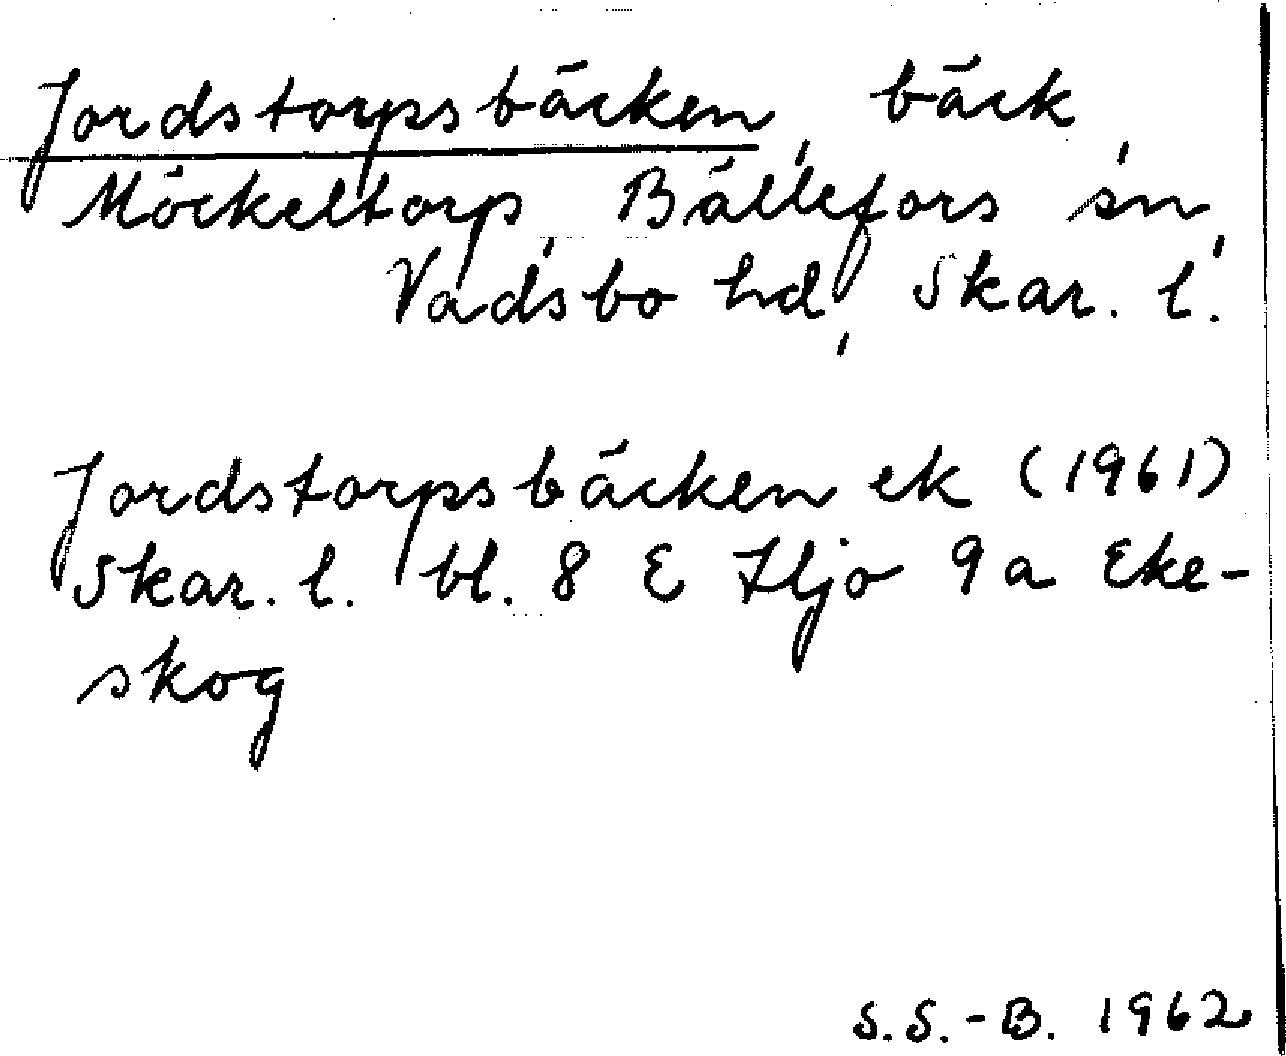 Jordstorpsbäcken, bäck,
Möckeltorp, Bällefors sn,
Vadsbo hd, Skar. l.
Jordstorpsbäcken ek (1961)
Skar. l. bl. 8 E Hjo 9a Eke-
skog
S.S.-B. 1962